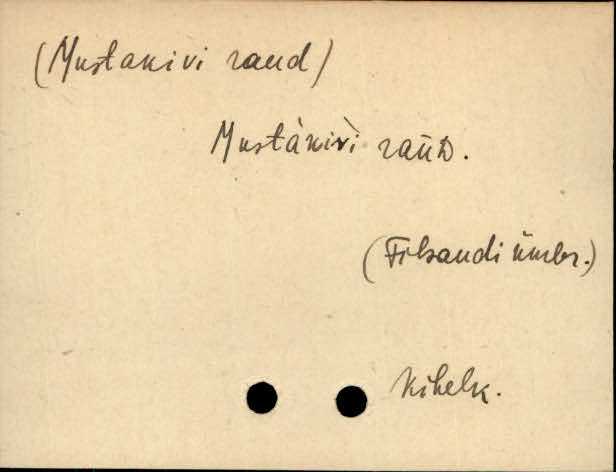 (Mustakivi raud)
Mustàkiv̀i raūD.
(Filsandi ümbr.)
Kihelk.